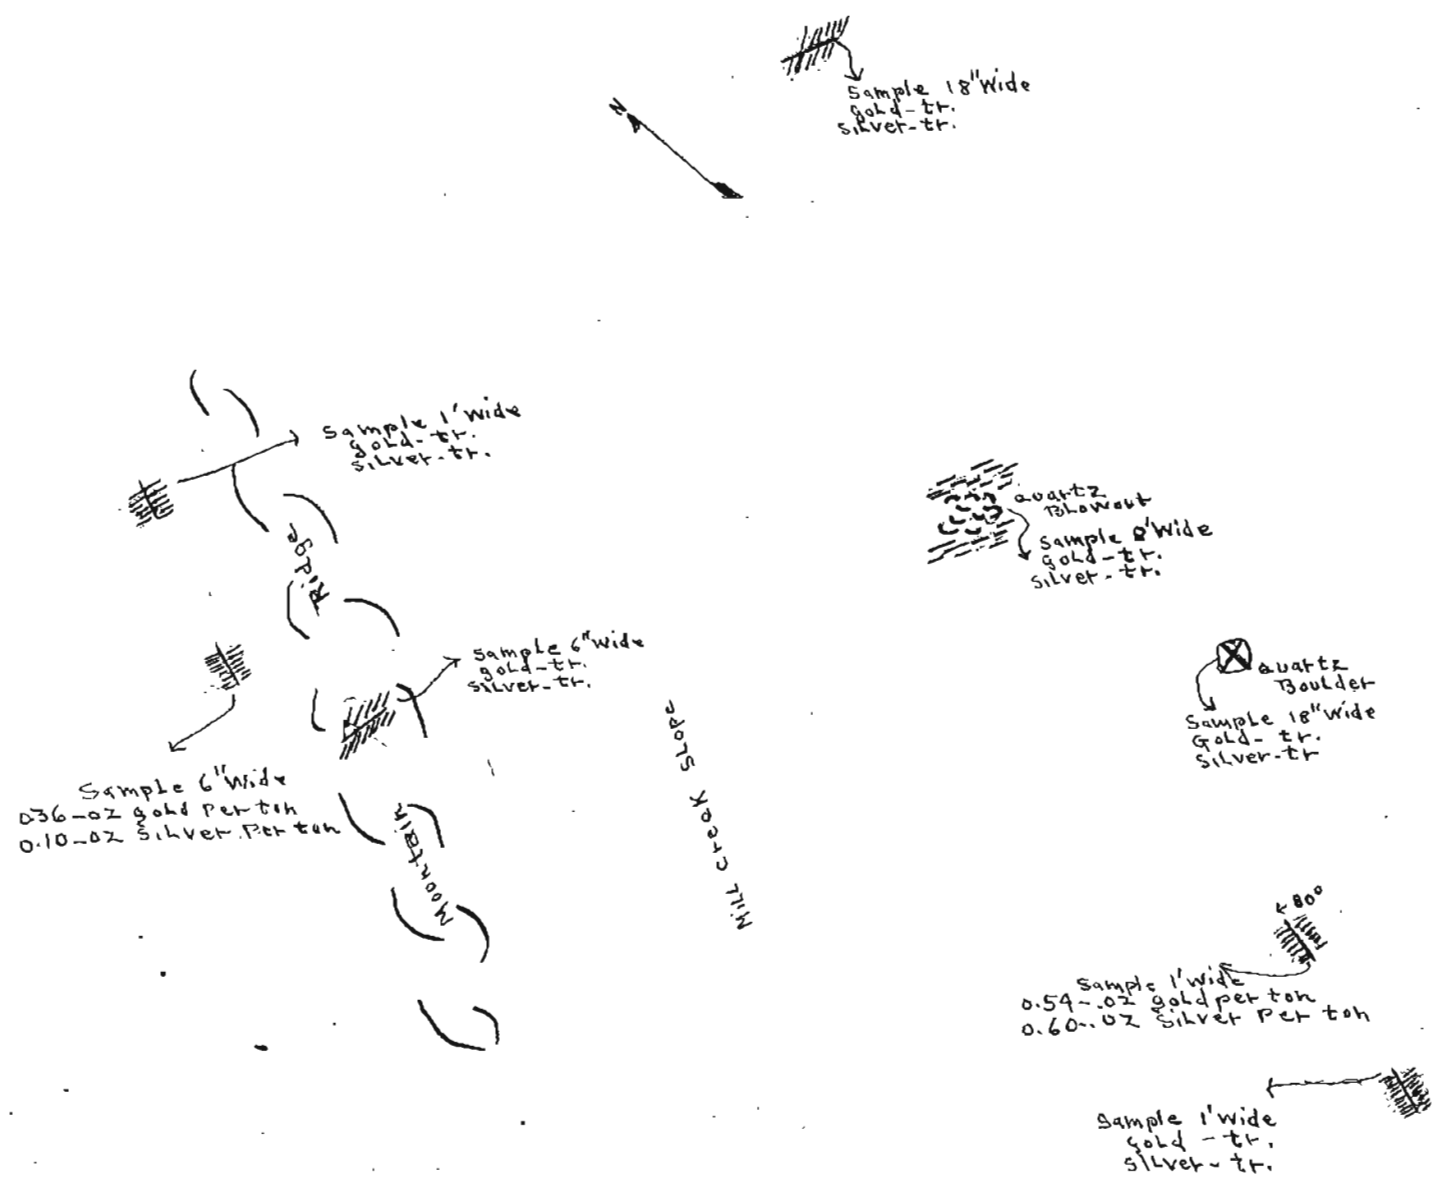 Sample 18" Wide
gold-tr.
silver-tr.
N
Sample 1' Wide
gold-tr.
silver-tr.
Ridge
Quartz
Blowout
Sample 8' Wide
gold-tr.
silver-tr.
Sample 6" Wide
gold-tr.
silver-tr.
Quartz
Boulder
Sample 18" Wide
Gold-tr.
silver-tr
Sample 6" Wide
036-oz gold Per ton
0.10-oz silver Per ton
Moontain
Mill Creek Slope
80°
Sample 1' Wide
0.54-.oz gold per ton
0.60-.oz silver Per ton
Sample 1' Wide
gold-tr.
silver-tr.